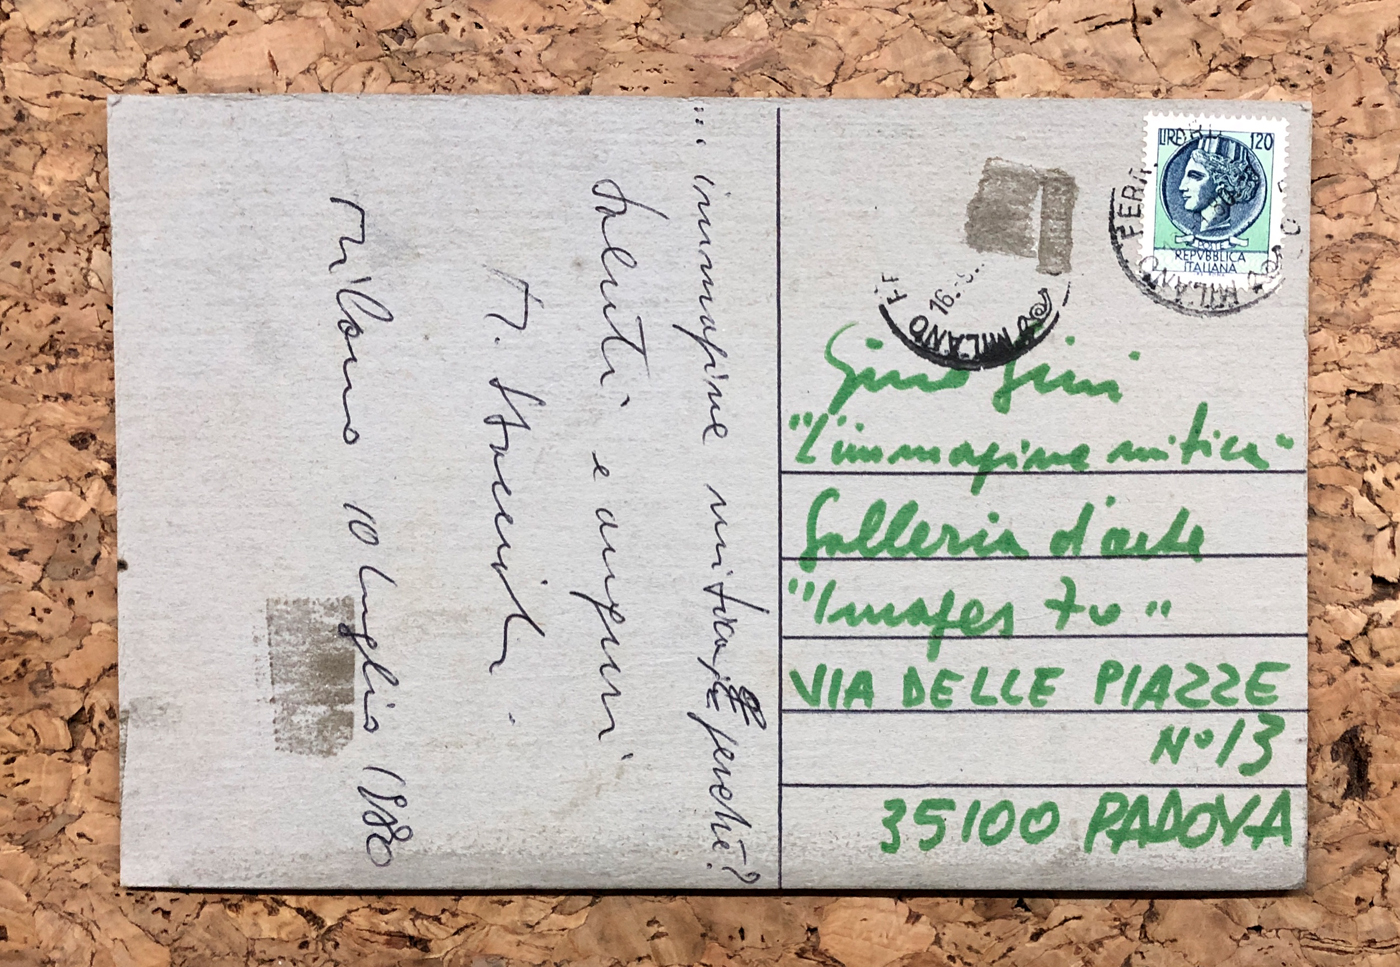 ... immagine mitica e perché?
Saluti e auguri
Milano 10 luglio 1980
LIRE 120
POSTE
REPVBBLICA
ITALIANA
MILANO FERR.
MILANO
16.
Gino Gini
"L'immagine mitica"
Galleria d'arte
"Images 70"
VIA DELLE PIAZZE
N° 13
35100 PADOVA